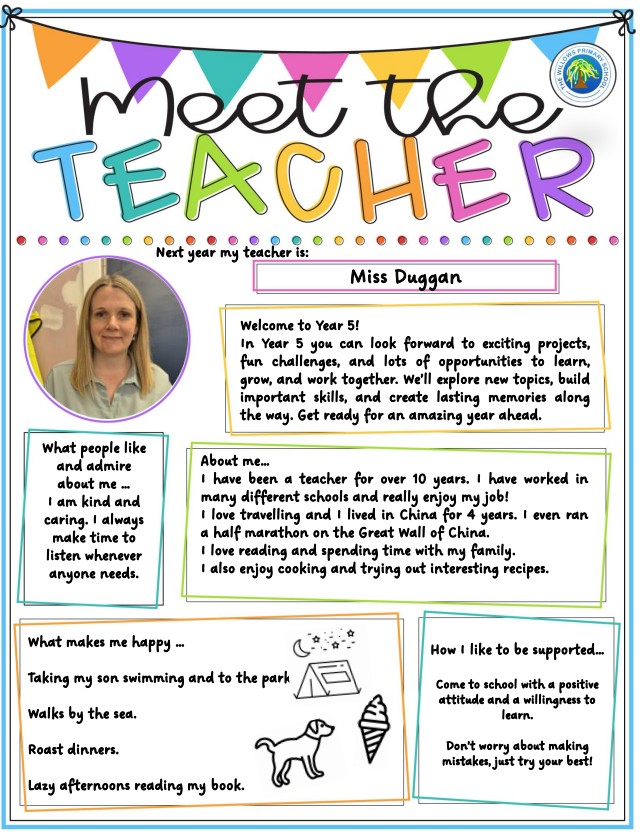 Meet the
TEACHER
THE WILLOWS PRIMARY SCHOOL
Next year my teacher is:
Miss Duggan
Welcome to Year 5!
In Year 5 you can look forward to exciting projects,
fun challenges, and lots of opportunities to learn,
grow, and work together. We'll explore new topics, build
important skills, and create lasting memories along
the way. Get ready for an amazing year ahead.
What people like
and admire
about me ...
I am kind and
caring. I always
make time to
listen whenever
anyone needs.
About me...
I have been a teacher for over 10 years. I have worked in
many different schools and really enjoy my job!
I love travelling and I lived in China for 4 years. I even ran
a half marathon on the Great Wall of China.
I love reading and spending time with my family.
I also enjoy cooking and trying out interesting recipes.
What makes me happy ...
Taking my son swimming and to the park
Walks by the sea.
Roast dinners.
Lazy afternoons reading my book.
How I like to be supported...
Come to school with a positive
attitude and a willingness to
learn.
Don't worry about making
mistakes, just try your best!